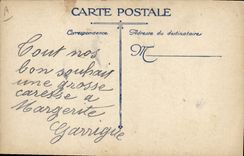 CARTE POSTALE
Correspondance Adresse du destinataire
M
Tout nos
bon souhait
une grosse
caresse a
Margerite
Garrigue